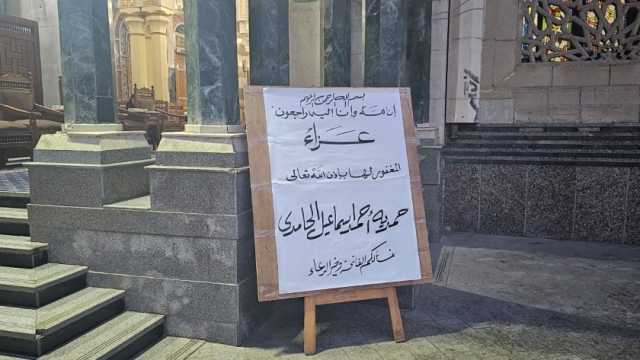 بسم الله الرحمن الرحيم
إنا لله وإنا إليه راجعون
عزاء
المغفور لها بإذن الله تعالى
حمدية أحمد إسماعيل الحامدي
نسألكم الفاتحة وخير الدعاء